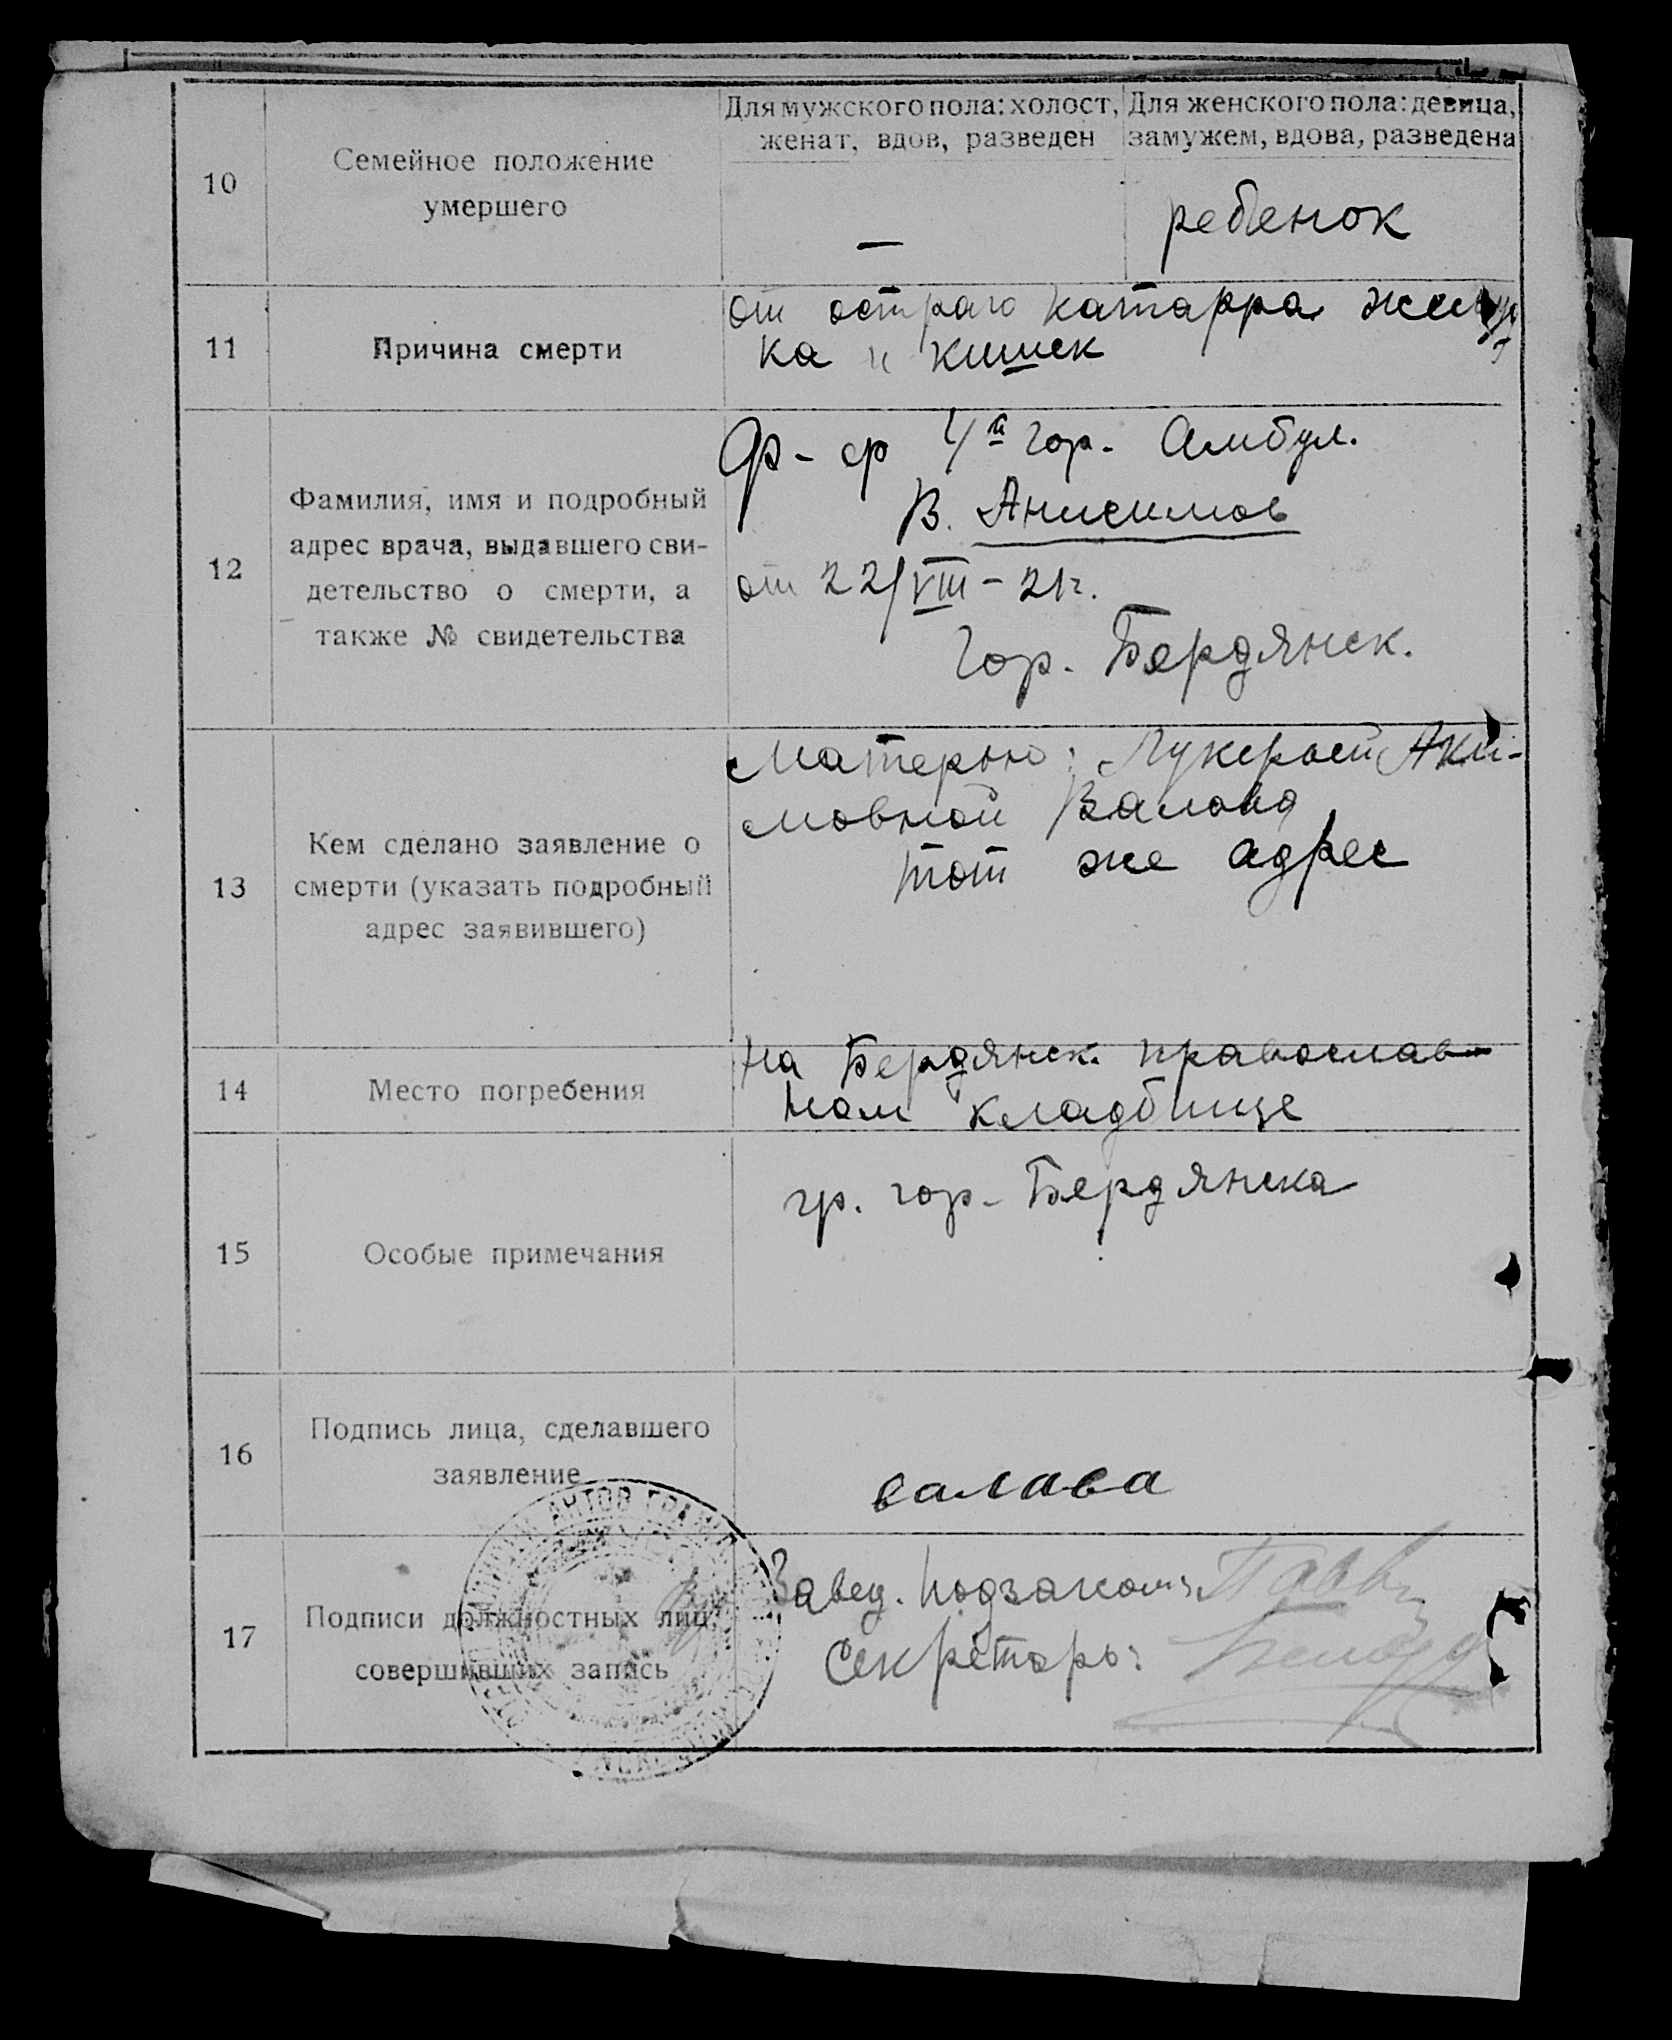 Для мужского пола: холост,
женат, вдов, разведен
Для женского пола: девица,
замужем, вдова, разведена
10
Семейное положение
умершего
—
ребенок
11
Причина смерти
от остраго катарра желуд
ка и кишек
12
Фамилия, имя и подробный
адрес врача, выдавшего сви-
детельство о смерти, а
также № свидетельства
Ф-ср 4а гор. Амбул.
В. Анисимов
от 22/VIII-21г.
Гор. Бердянск.
13
Кем сделано заявление о
смерти (указать подробный
адрес заявившего)
Матерью: Лукерьей Аки-
мовной Валова
тот же адрес
14
Место погребения
на Бердянск. православ-
ном кладбище
15
Особые примечания
гр. гор. Бердянска
16
Подпись лица, сделавшего
заявление
валова
17
Подписи должностных лиц,
совершивших запись
Завед. Подзагсом:
Секретарь:
АКТОВ ГРАЖД